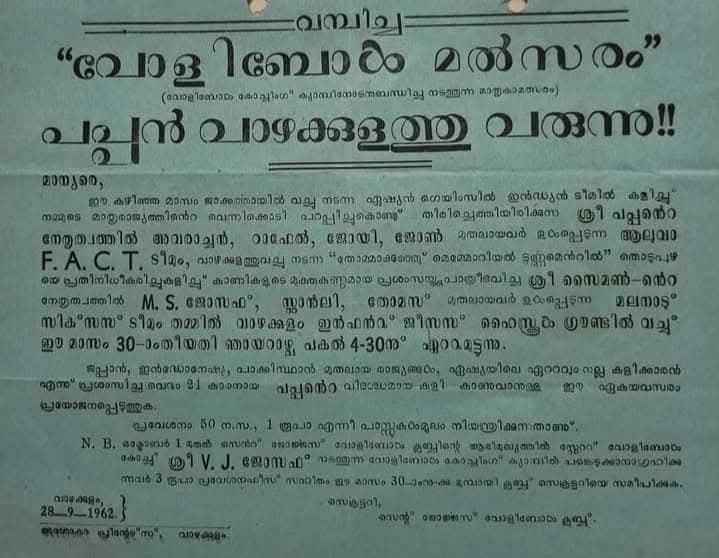 വമ്പിച്ച
“വോളിബോൾ മൽസരം”
(വോളിബോൾ കോച്ചിംഗ് ക്യാമ്പിനോടനുബന്ധിച്ചു നടത്തുന്ന മാതൃകാമത്സരം)
പപ്പൻ വാഴക്കുളത്തു വരുന്നു!!
മാന്യരെ,
ഈ കഴിഞ്ഞ മാസം ജാക്കർത്തായിൽ വച്ചു നടന്ന ഏഷ്യൻ ഗെയിംസിൽ ഇൻഡ്യൻ ടീമിൽ കളിച്ച്
നമ്മുടെ മാതൃരാജ്യത്തിൻെറ വെന്നിക്കൊടി പറപ്പിച്ചുകൊണ്ട് തിരിച്ചെത്തിയിരിക്കുന്ന ശ്രീ പപ്പൻെറ
നേതൃത്വത്തിൽ അവരാച്ചൻ, റാഫേൽ, ജോയി, ജോൺ മുതലായവർ ഉൾപ്പെടുന്ന ആലുവാ
F. A. C. T. ടീമും, വാഴക്കുളത്തുവച്ചു നടന്ന “തോമ്മാക്കത്തോട്ടു് മെമ്മോറിയൽ ടൂണ്ണമെൻറിൽ” തൊടുപുഴ
യെ പ്രതിനിധീകരിച്ചുകളിച്ച് കാണികളുടെ മുക്തകണ്ഠമായ പ്രശംസയ്ക്കുപാത്രീഭവിച്ച ശ്രീ സൈമൺ-ൻെറ
നേതൃത്വത്തിൽ M. S. ജോസഫ്, സ്റ്റാൻലി, തോമസ് മുതലായവർ ഉൾപ്പെടുന്ന മലനാട്
സിക്സസ് ടീമും തമ്മിൽ വാഴക്കുളം ഇൻഫൻറ് ജീസസ് ഹൈസ്കൂൾ ഗ്രൗണ്ടിൽ വച്ച്
ഈ മാസം 30-ാംതീയതി ഞായറാഴ്ച പകൽ 4-30ന് ഏററുമുട്ടുന്നു.
ജപ്പാൻ, ഇൻഡോനേഷ്യ, പാക്കിസ്ഥാൻ മുതലായ രാജ്യങ്ങൾ, ഏഷ്യയിലെ ഏററവും നല്ല കളിക്കാരൻ
എന്ന് പ്രശംസിച്ച വെറും 21 കാരനായ പപ്പൻെറ വിദഗ്ദ്ധമായ കളി കാണുവാനുള്ള ഈ ഏകയവസരം
പ്രയോജനപ്പെടുത്തുക.
പ്രവേശനം 50 ന.പ., 1 രൂപാ എന്നീ പാസ്സുകൾമൂലം നിയന്ത്രിക്കുന്നതാണ്.
N. B. ഒക്ടോബർ 1 മുതൽ സെൻറ് ജോർജ്ജസ് വോളിബോൾ ക്ലബ്ബിൻെറ ആഭിമുഖ്യത്തിൽ സ്റ്റേററ് വോളിബോൾ
കോച്ച് ശ്രീ V. J. ജോസഫ് നടത്തുന്ന വോളിബോൾ കോച്ചിംഗ് ക്യാമ്പിൽ പങ്കെടുക്കാനാഗ്രഹിക്കു
ന്നവർ 3 രൂപാ പ്രവേശനഫീസ് സഹിതം ഈ മാസം 30-ാംനു-ക്കു മുമ്പായി ക്ലബ്ബ് സെക്രട്ടറിയെ സമീപിക്കുക.
വാഴക്കുളം,
28—9—1962.
സെക്രട്ടറി,
സെൻറ് ജോർജ്ജസ് വോളിബോൾ ക്ലബ്ബ്.
അശോകാ പ്രിൻറേഴ്സ്, വാഴക്കുളം.